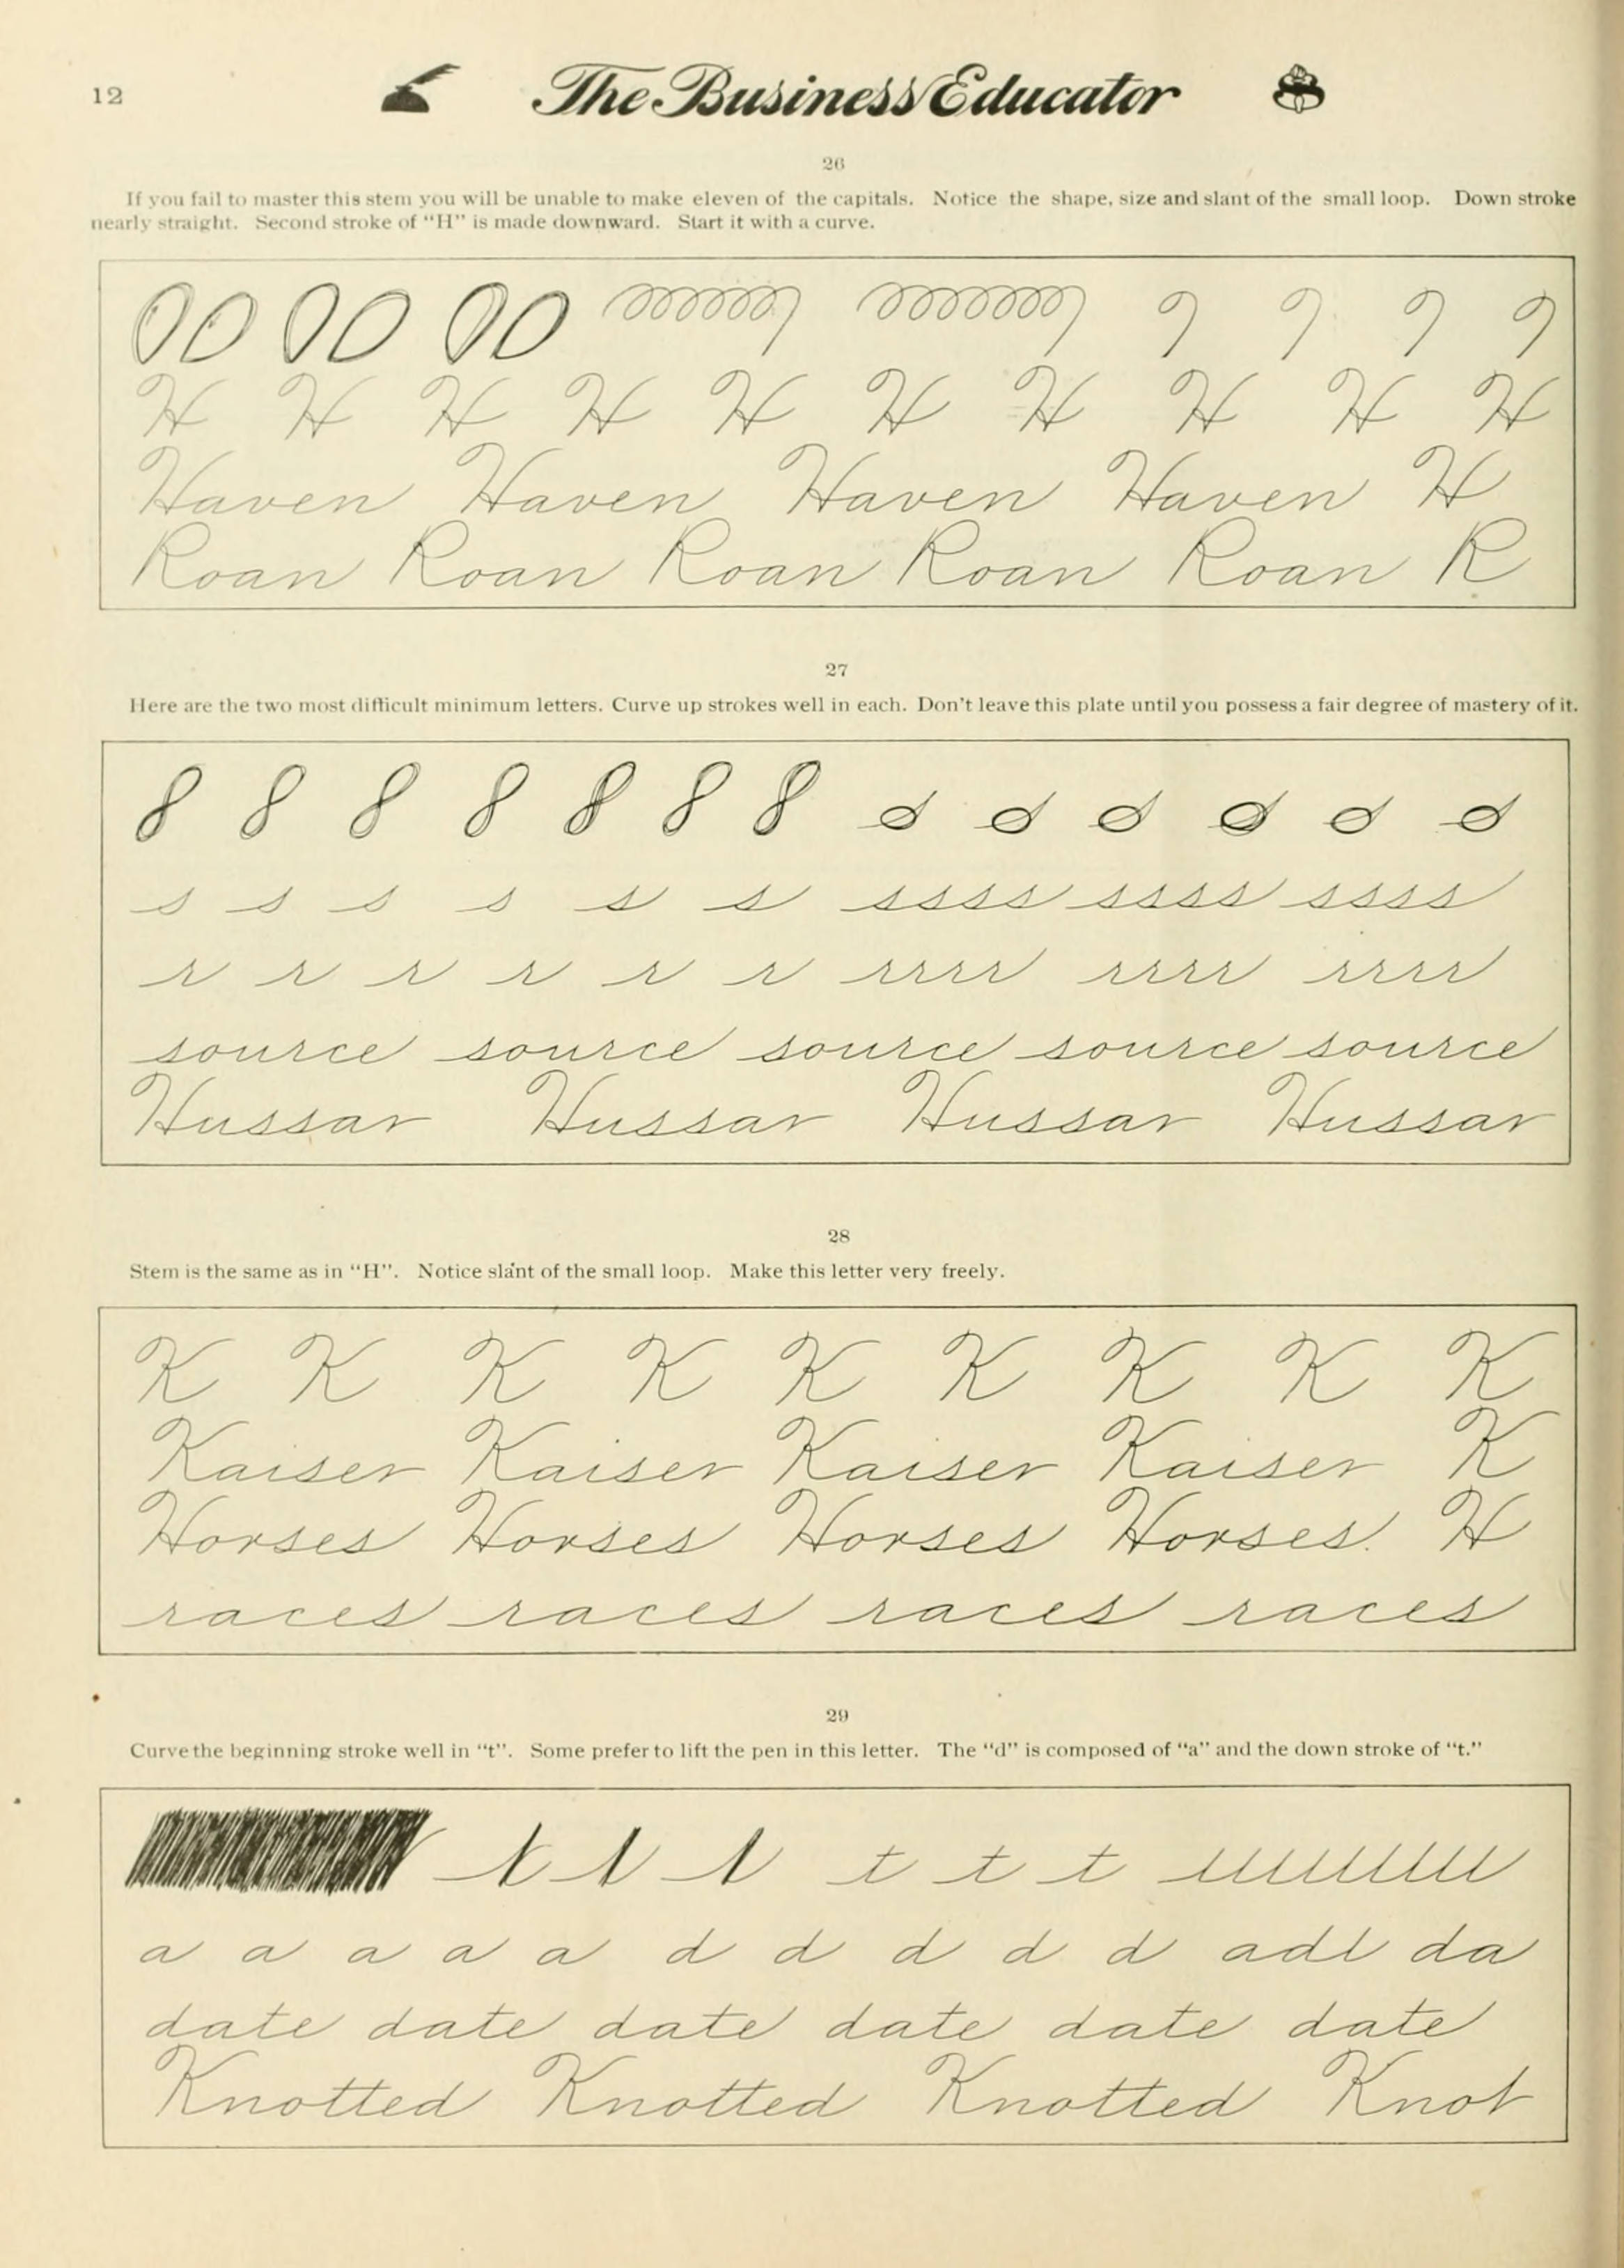 12
The Business Educator
26
If you fail to master this stem you will be unable to make eleven of the capitals. Notice the shape, size and slant of the small loop. Down stroke
nearly straight. Second stroke of “H” is made downward. Start it with a curve.
H H H H H H H H H H
Haven Haven Haven Haven H
Roan Roan Roan Roan Roan R
27
Here are the two most difficult minimum letters. Curve up strokes well in each. Don't leave this plate until you possess a fair degree of mastery of it.
s s s s s s ssss ssss ssss
r r r r r r rrrr rrrr rrrr
source source source source source
Hussar Hussar Hussar Hussar
28
Stem is the same as in “H”. Notice slant of the small loop. Make this letter very freely.
K K K K K K K K K
Kaiser Kaiser Kaiser Kaiser K
Horses Horses Horses Horses. H
races races races races
29
Curve the beginning stroke well in “t”. Some prefer to lift the pen in this letter. The “d” is composed of “a” and the down stroke of “t.”
t t t
a a a a a d d d d d adt da
date date date date date date
Knotted Knotted Knotted Knot